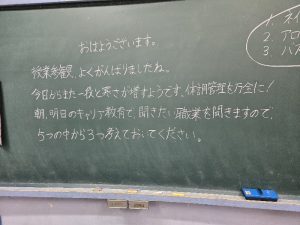 おはようございます。
授業参観、よくがんばりましたね。
今日からまた一段と寒さが増すようです。体調管理を万全に!
朝、明日のキャリア教育で、聞きたい職業を聞きますので、
5つの中から3つ考えておいてください。
1.
2. アロ
3.